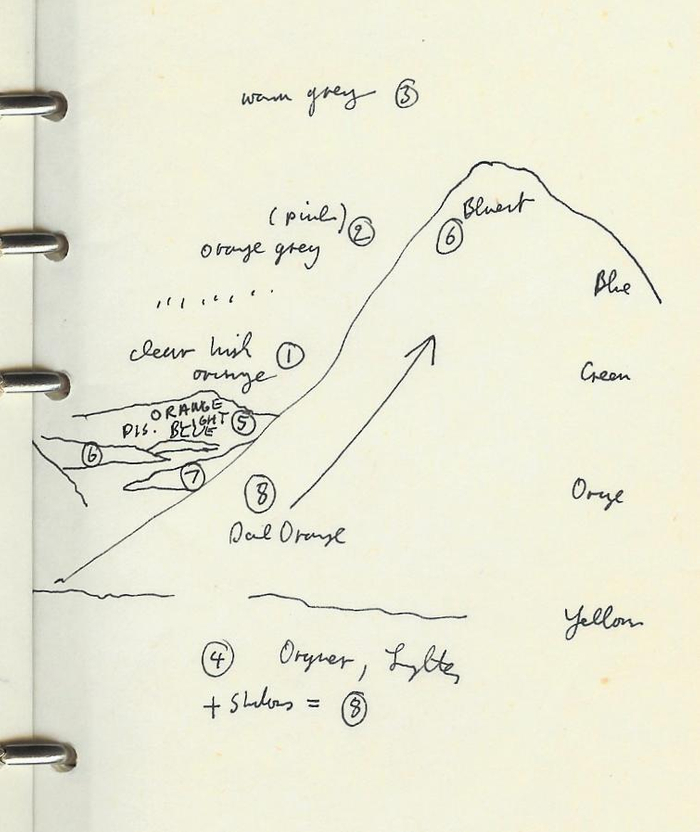 warm grey ③
(pink) ②
orange grey
Bluest
⑥
Blue
clear high ①
orange
Green
ORANGE
DIS. BLUE LIGHT ⑤
⑥
⑦
⑧
Orange
Yellow
④ Lighter
+ Shadows = ⑧